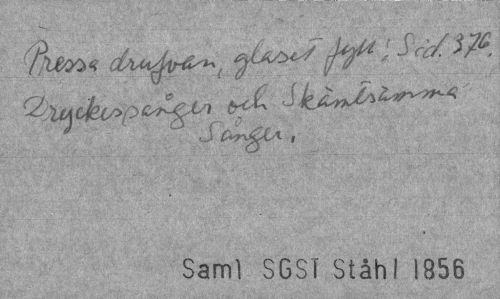 Pressa drufvan, glaset fyll! Sid. 376.
Dryckessånger och Skämtsamma
Sånger.
Saml SGST Ståhl 1856